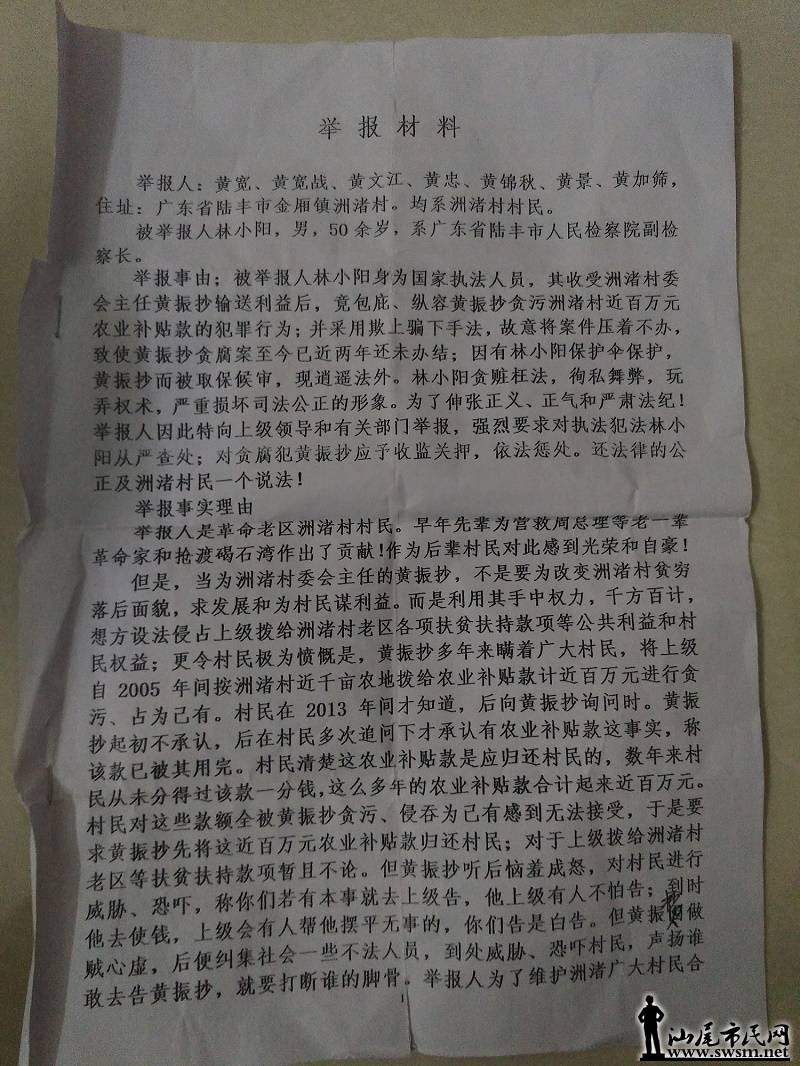 举报材料
举报人：黄宽、黄宽战、黄文江、黄忠、黄锦秋、黄景、黄加筛，
住址：广东省陆丰市金厢镇洲渚村。均系洲渚村村民。
被举报人林小阳，男，50余岁，系广东省陆丰市人民检察院副检
察长。
举报事由；被举报人林小阳身为国家执法人员，其收受洲渚村委
会主任黄振抄输送利益后，竟包庇、纵容黄振抄贪污洲渚村近百万元
农业补贴款的犯罪行为；并采用欺上骗下手法，故意将案件压着不办，
致使黄振抄贪腐案至今已近两年还未办结；因有林小阳保护伞保护，
黄振抄而被取保候审，现逍遥法外。林小阳贪赃枉法，徇私舞弊，玩
弄权术，严重损坏司法公正的形象。为了伸张正义、正气和严肃法纪！
举报人因此特向上级领导和有关部门举报，强烈要求对执法犯法林小
阳从严查处；对贪腐犯黄振抄应予收监关押，依法惩处。还法律的公
正及洲渚村民一个说法！
举报事实理由
举报人是革命老区洲渚村村民。早年先辈为营救周总理等老一辈
革命家和抢渡碣石湾作出了贡献！作为后辈村民对此感到光荣和自豪！
但是，当为洲渚村委会主任的黄振抄，不是要为改变洲渚村贫穷
落后面貌，求发展和为村民谋利益。而是利用其手中权力，千方百计，
想方设法侵占上级拨给洲渚村老区各项扶贫扶持款项等公共利益和村
民权益；更令村民极为愤慨是，黄振抄多年来瞒着广大村民，将上级
自 2005 年间按洲渚村近千亩农地拨给农业补贴款计近百万元进行贪
污、占为己有。村民在 2013 年间才知道，后向黄振抄询问时。黄振
抄起初不承认，后在村民多次追问下才承认有农业补贴款这事实，称
该款已被其用完。村民清楚这农业补贴款是应归还村民的，数年来村
民从未分得过该款一分钱，这么多年的农业补贴款合计起来近百万元。
村民对这些款额全被黄振抄贪污、侵吞为己有感到无法接受，于是要
求黄振抄先将这近百万元农业补贴款归还村民；对于上级拨给洲渚村
老区等扶贫扶持款项暂且不论。但黄振抄听后恼羞成怒，对村民进行
威胁、恐吓，称你们若有本事就去上级告，他上级有人不怕告；到时
他去使钱，上级会有人帮他摆平无事的，你们告是白告。但黄振 做
贼心虚，后便纠集社会一些不法人员，到处威胁、恐吓村民，声扬谁
敢去告黄振抄，就要打断谁的脚骨。举报人为了维护洲渚广大村民合
汕尾市民网
www.swsm.net